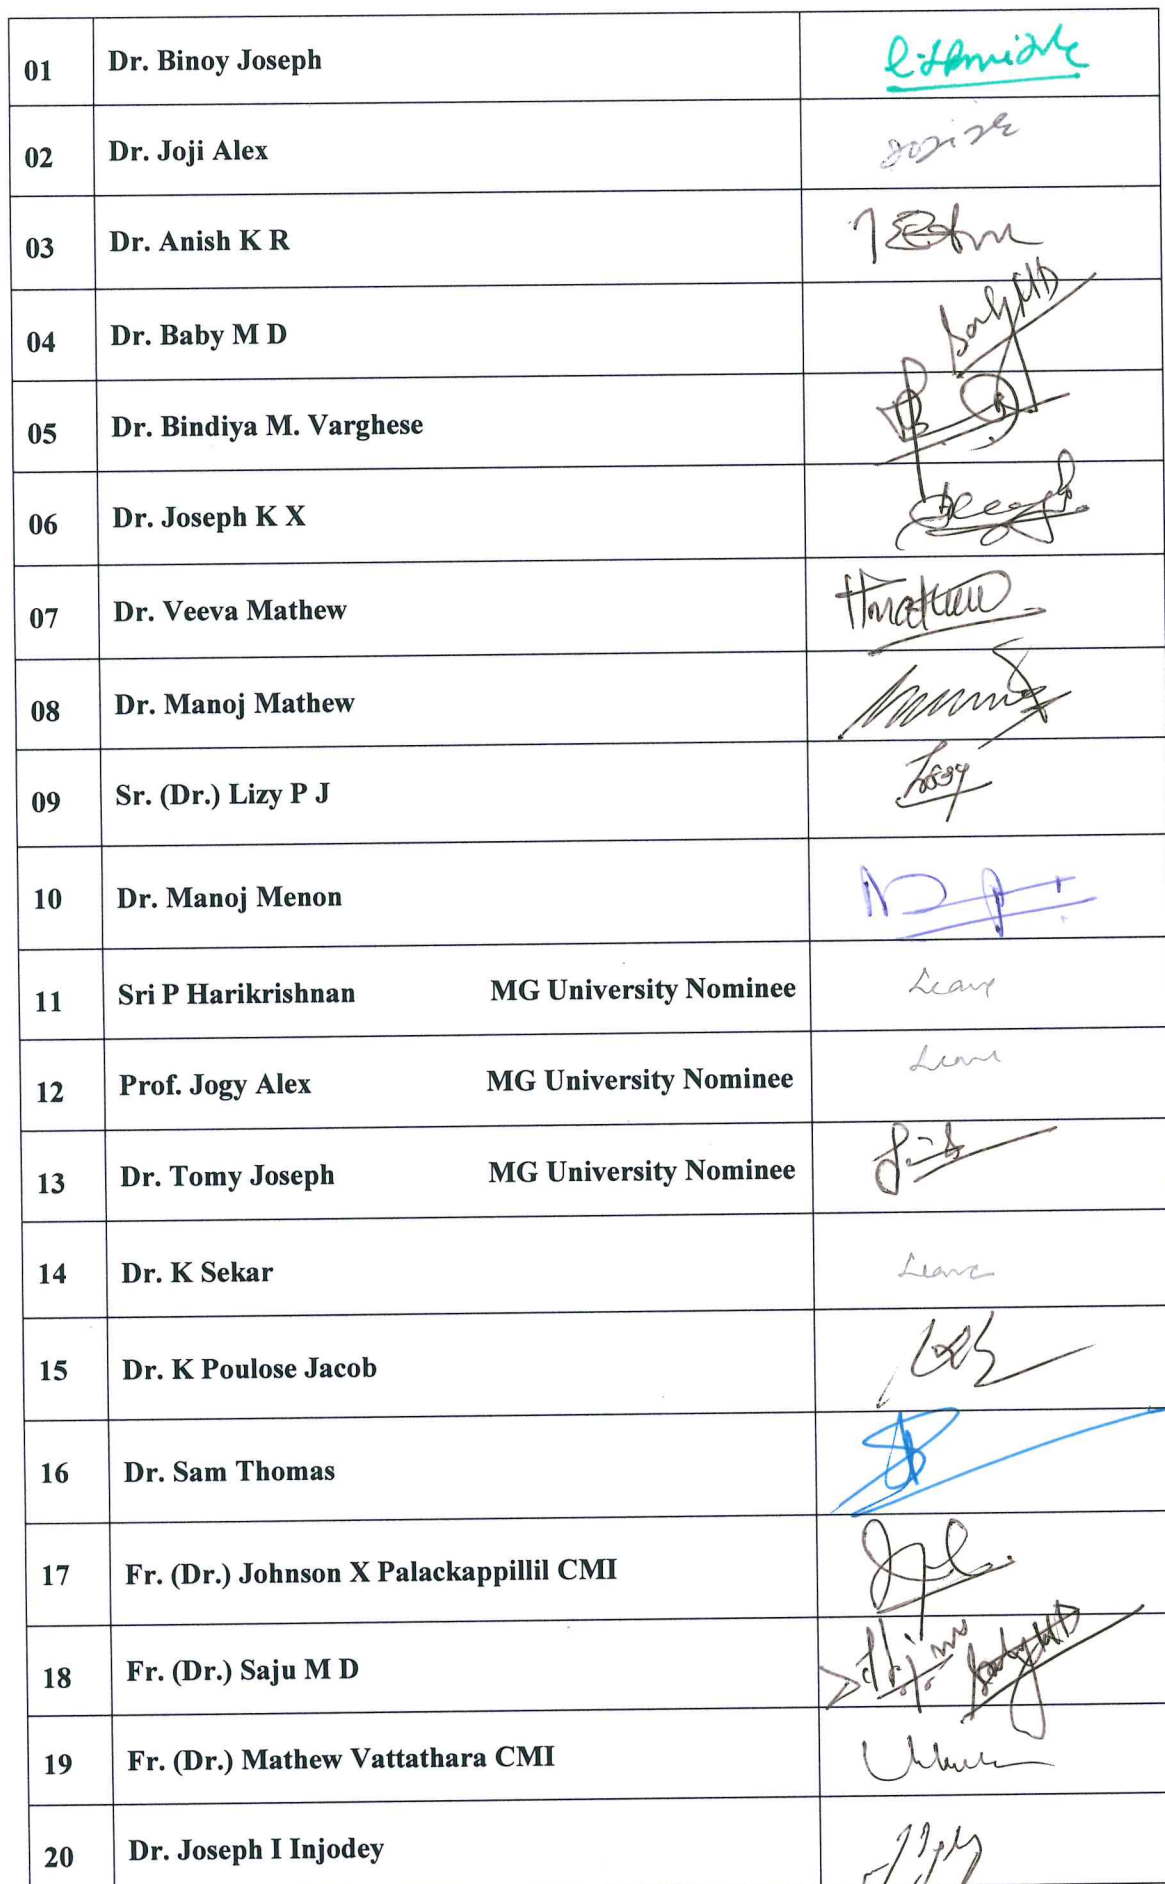 01 Dr. Binoy Joseph
02 Dr. Joji Alex
03 Dr. Anish K R
04 Dr. Baby M D Baby MD
05 Dr. Bindiya M. Varghese
06 Dr. Joseph K X
07 Dr. Veeva Mathew
08 Dr. Manoj Mathew
09 Sr. (Dr.) Lizy P J
10 Dr. Manoj Menon
11 Sri P Harikrishnan MG University Nominee Leave
12 Prof. Jogy Alex MG University Nominee Leave
13 Dr. Tomy Joseph MG University Nominee
14 Dr. K Sekar Leave
15 Dr. K Poulose Jacob
16 Dr. Sam Thomas
17 Fr. (Dr.) Johnson X Palackappillil CMI
18 Fr. (Dr.) Saju M D Baby MD
19 Fr. (Dr.) Mathew Vattathara CMI
20 Dr. Joseph I Injodey